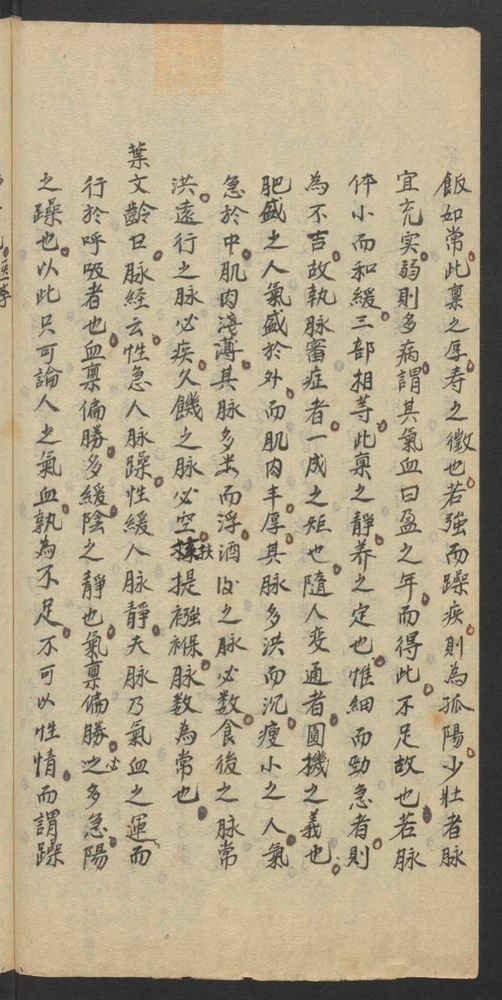 飯如常此稟之厚寿之徵也若強而躁疾則為孤陽少壯者脉
宜充实弱則多病謂其氣血日盈之年而得此不足故也若脉
伴小而和緩三部相等此稟之靜养之定也惟細而勁急者則
為不吉故執脉審症者一成之矩也隨人变通者圓機之義也
肥盛之人氣盛於外而肌肉丰厚其脉多洪而沉瘦小之人氣
急於中肌肉淺薄其脉多耒而浮酒後之脉必数食後之脉常
洪遠行之脉必疾久饑之脉必空扶提襁褓脉数為常也
葉文齡曰脉經云性急人脉躁性緩人脉靜夫脉乃氣血之運而
行於呼吸者也血稟偏勝必多緩陰之靜也氣稟偏勝必多急陽
之躁也以此只可論人之氣血孰為不足不可以性情而謂躁